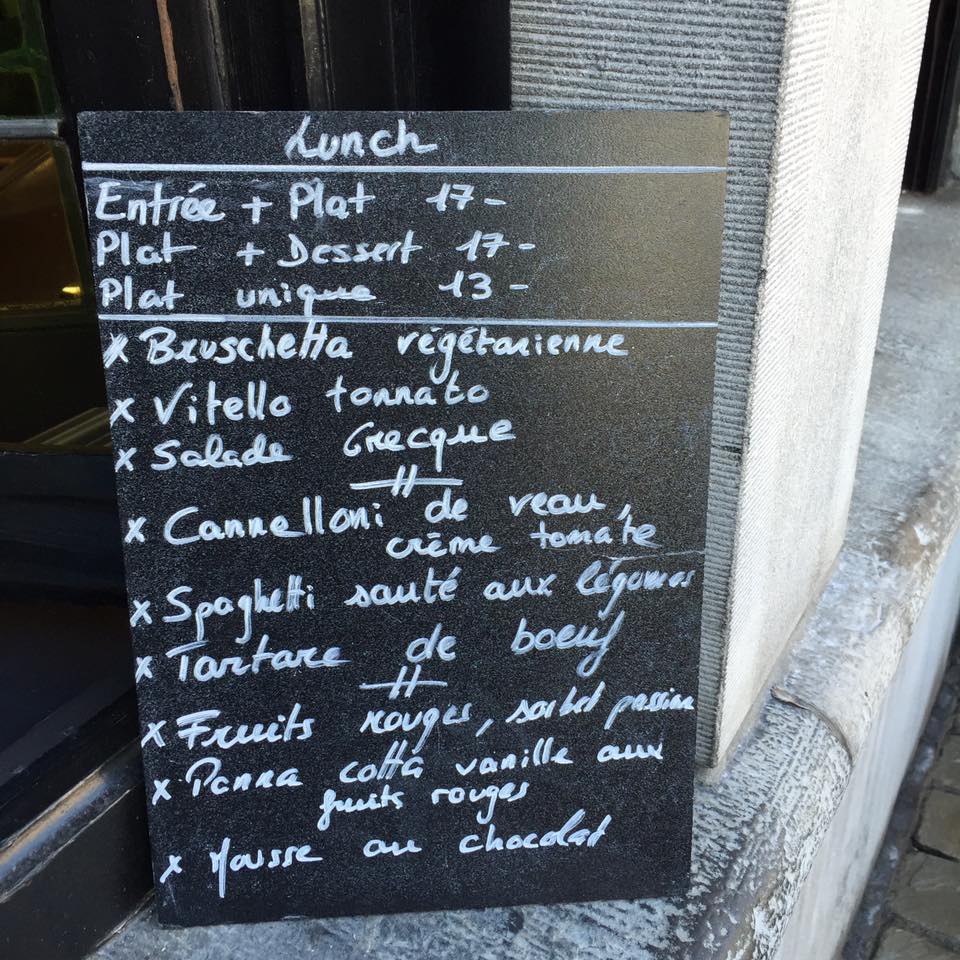 Lunch
Entrée + Plat 17-
Plat + Dessert 17-
Plat unique 13-
x Bruschetta végétarienne
x Vitello tonnato
x Salade Grecque
x Cannelloni de veau,
crème tomate
x Spaghetti sauté aux légumes
x Tartare de boeuf
x Fruits rouges, sorbet passion
x Panna cotta vanille aux
fruits rouges
x Mousse au chocolat